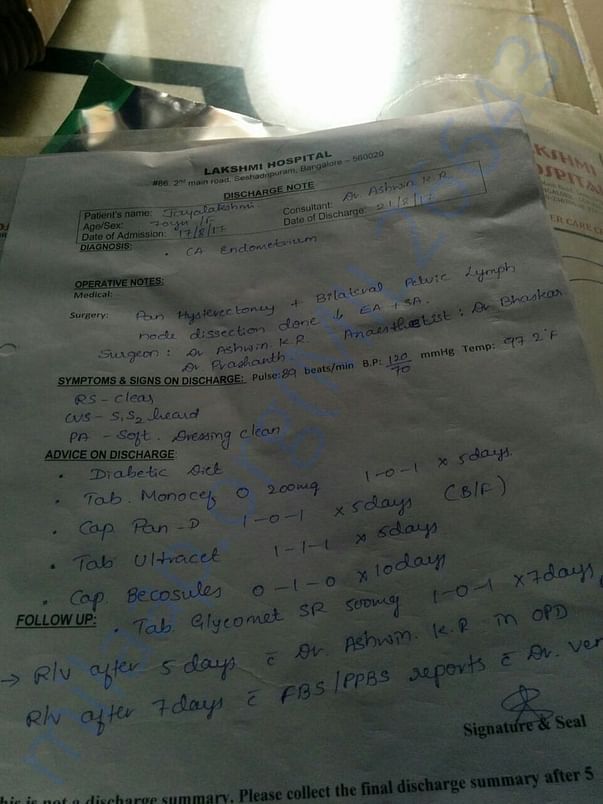 LAKSHMI HOSPITAL
#86. 2nd main road, Seshadripuram, Bangalore – 560020
DISCHARGE NOTE
Patient's name: Jayalakshmi Consultant: Dr. Ashwin. K.R.
Age/Sex: 70yrs /F Date of Discharge: 21/8/17
Date of Admission: 17/8/17
DIAGNOSIS: • CA Endometrium
OPERATIVE NOTES:
Medical:
Surgery: Pan Hysterectomy + Bilateral Pelvic Lymph
node dissection done ↓ EA + SA.
Surgeon: Dr Ashwin. K.R. Anaesthetist: Dr Bhaskar
Dr Prashanth.
SYMPTOMS & SIGNS ON DISCHARGE: Pulse: 89 beats/min B.P: 120/70 mmHg Temp: 97.2°F
RS - clear
CVS - S1S2 heard
PA - Soft. Dressing clean
ADVICE ON DISCHARGE:
• Diabetic Diet
• Tab. Monocef O 200mg 1-0-1 x 5days
• Cap. Pan-D 1-0-1 x 5days (B/F)
• Tab Ultracet 1-1-1 x 5days
• Cap. Becosules 0-1-0 x 10days
FOLLOW UP: • Tab. Glycomet SR 500mg 1-0-1 x 7days
→ R/v after 5 days c̄ Dr. Ashwin. K.R in OPD
R/v after 7days c̄ FBS/PPBS reports c̄ Dr.
Signature & Seal
his is not a discharge summary. Please collect the final discharge summary after 5
KSHMI
OSPITAL
ER CARE